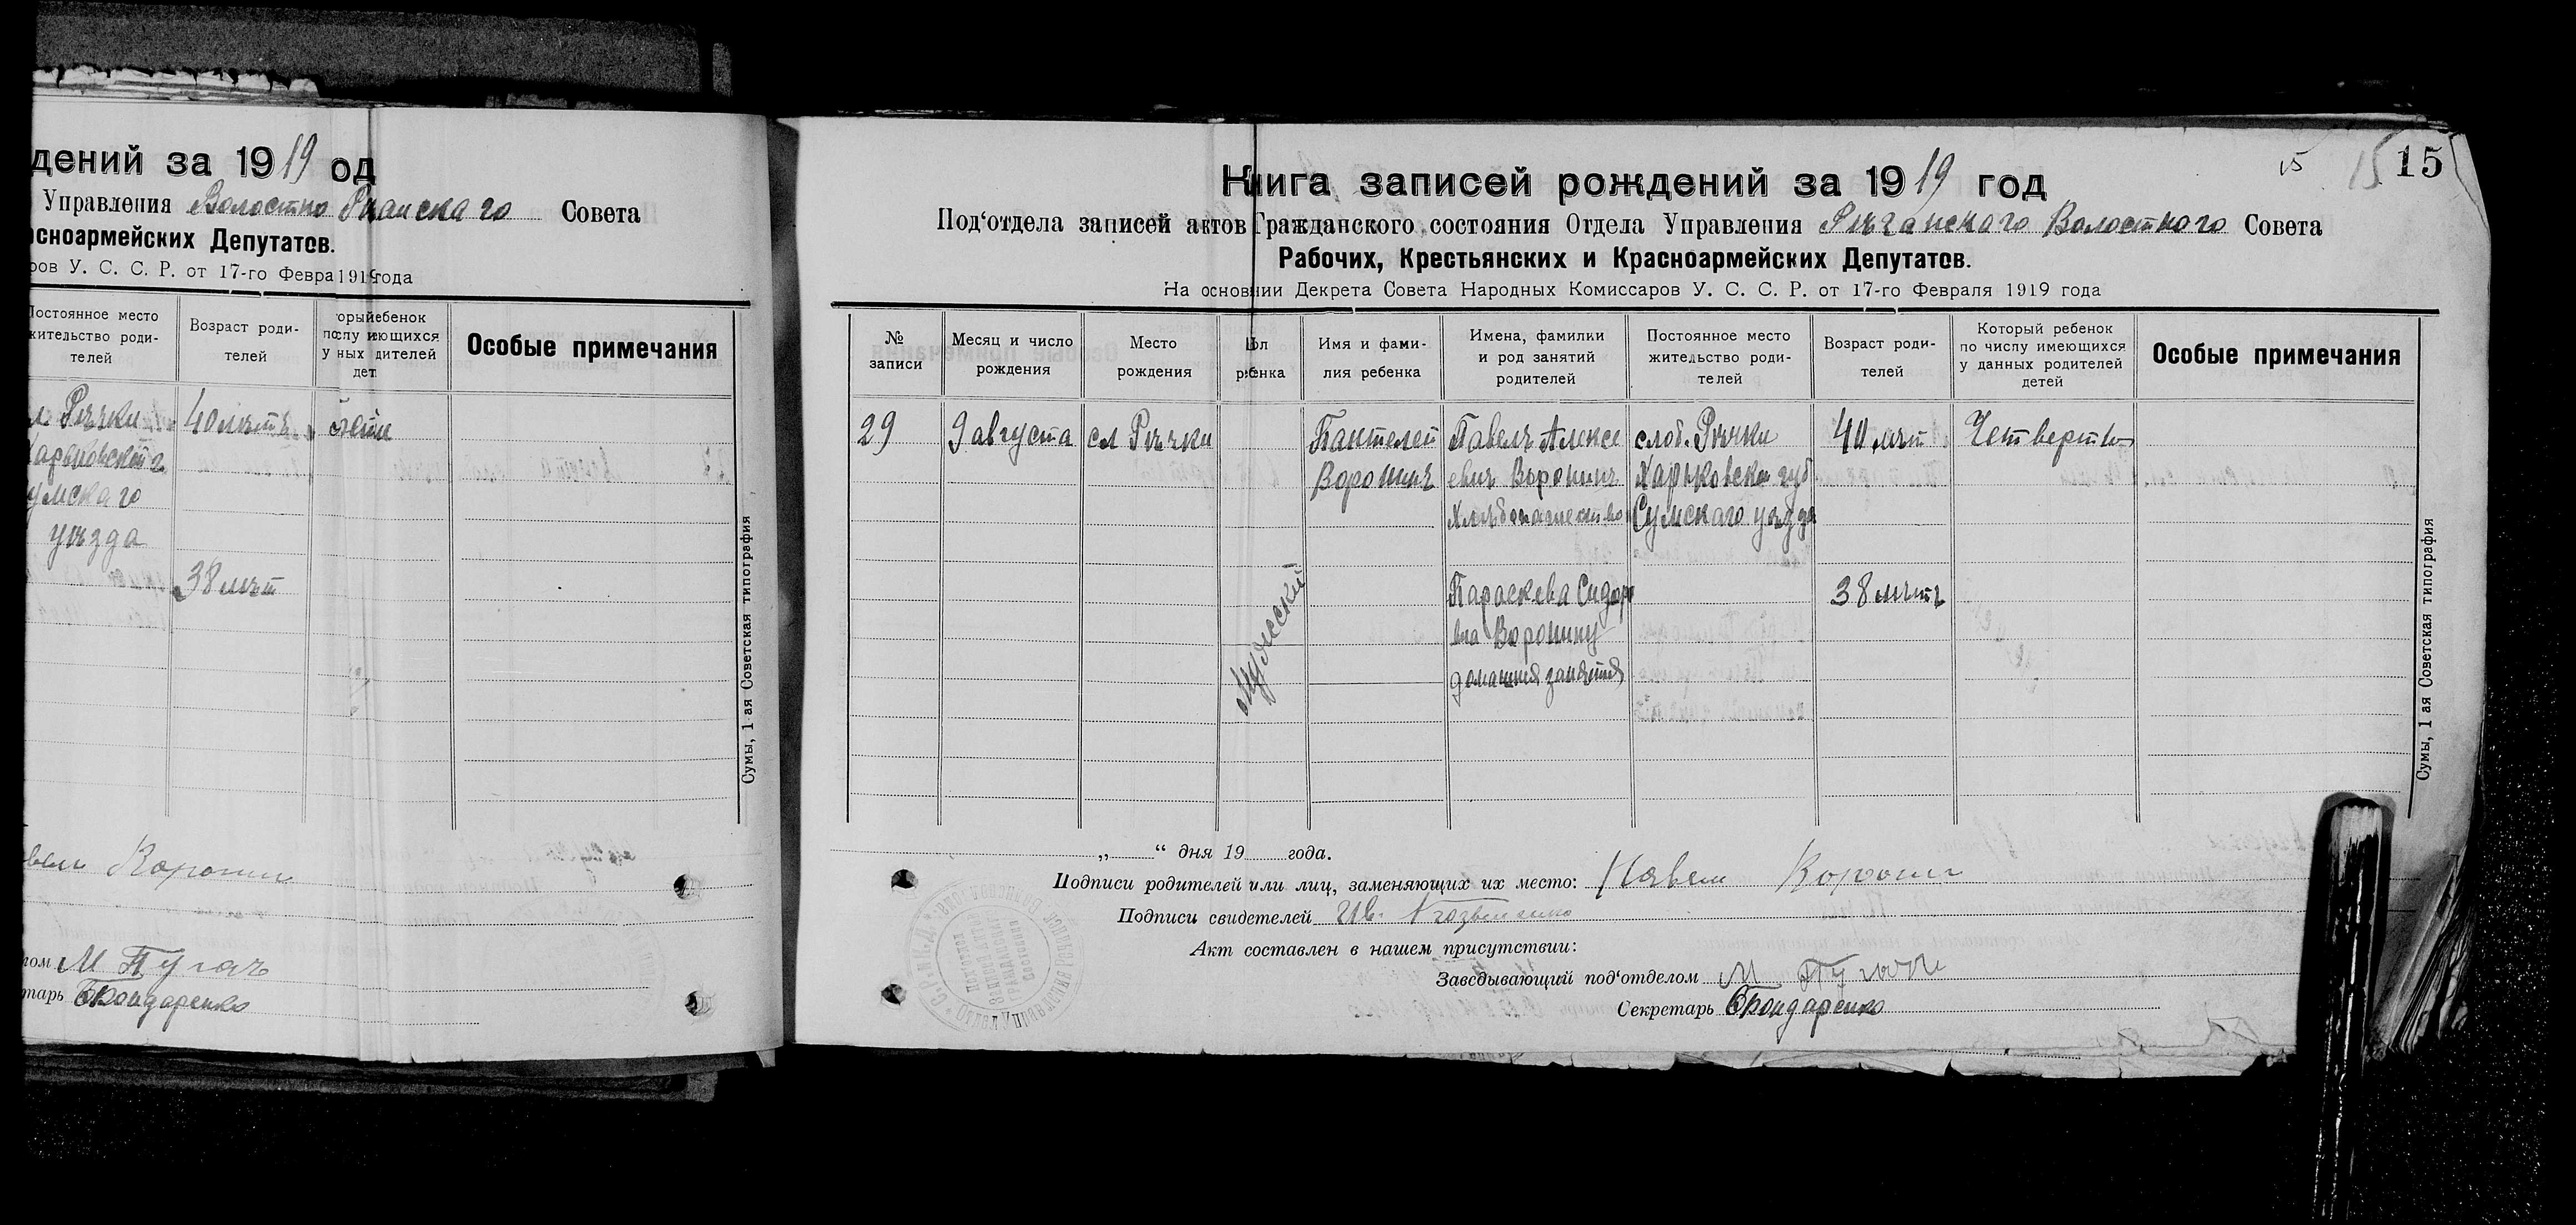 дений за 1919 од
Управления Волостно Речанскаго Совета
рсноармейских Депутатов.
ров У. С. С. Р. от 17-го Февра 1919 года
Постоянное место
жительство роди-
телей
Возраст роди-
телей
орый ебенок
по слу иеющихся
у ных дителей
дет
Особые примечания
л Рѣчки
Харьковской г.
умскаго
уѣзда
40 лѣтъ
38 лѣт
Сумы, 1-ая Советская типография
Воронин
М Пугачъ
тарь Бондаренко
15 15 15
Книга записей рождений за 1919 год
Под‘отдела записей актов Гражданского состояния Отдела Управления Рѣчанскаго Волостного Совета
Рабочих, Крестьянских и Красноармейских Депутатов.
На основнии Декрета Совета Народных Комиссаров У. С. С. Р. от 17-го Февраля 1919 года
№
записи
Месяц и число
рождения
Место
рождения
Пол
рбенка
Имя и фами-
лия ребенка
Имена, фамилки
и род занятий
родителей
Постоянное место
жительство роди-
телей
Возраст роди-
телей
Который ребенок
по числу имеющихся
у данных родителей
детей
Особые примечания
29
9 августа
сл Рѣчки
Мужеский
Пантелей
Воронинъ
Павелъ Алексе
евич Воронинъ
Хлѣбопашество
Параскева Сидоро
вна Воронину
домашния занятия
слоб. Рѣчки
Харьковской губ
Сумскаго уѣзда
40 лѣт
38 лѣтъ
Четверты
Сумы, 1 ая Советская типография
„ “ дня 19 года.
Подписи родителей или лиц, заменяющих их место: Павел Воронин
Подписи свидетелей Ив.
Акт составлен в нашем присутствии:
Заведывающий под‘отделом М Пугачъ
Секретарь Бондаренко